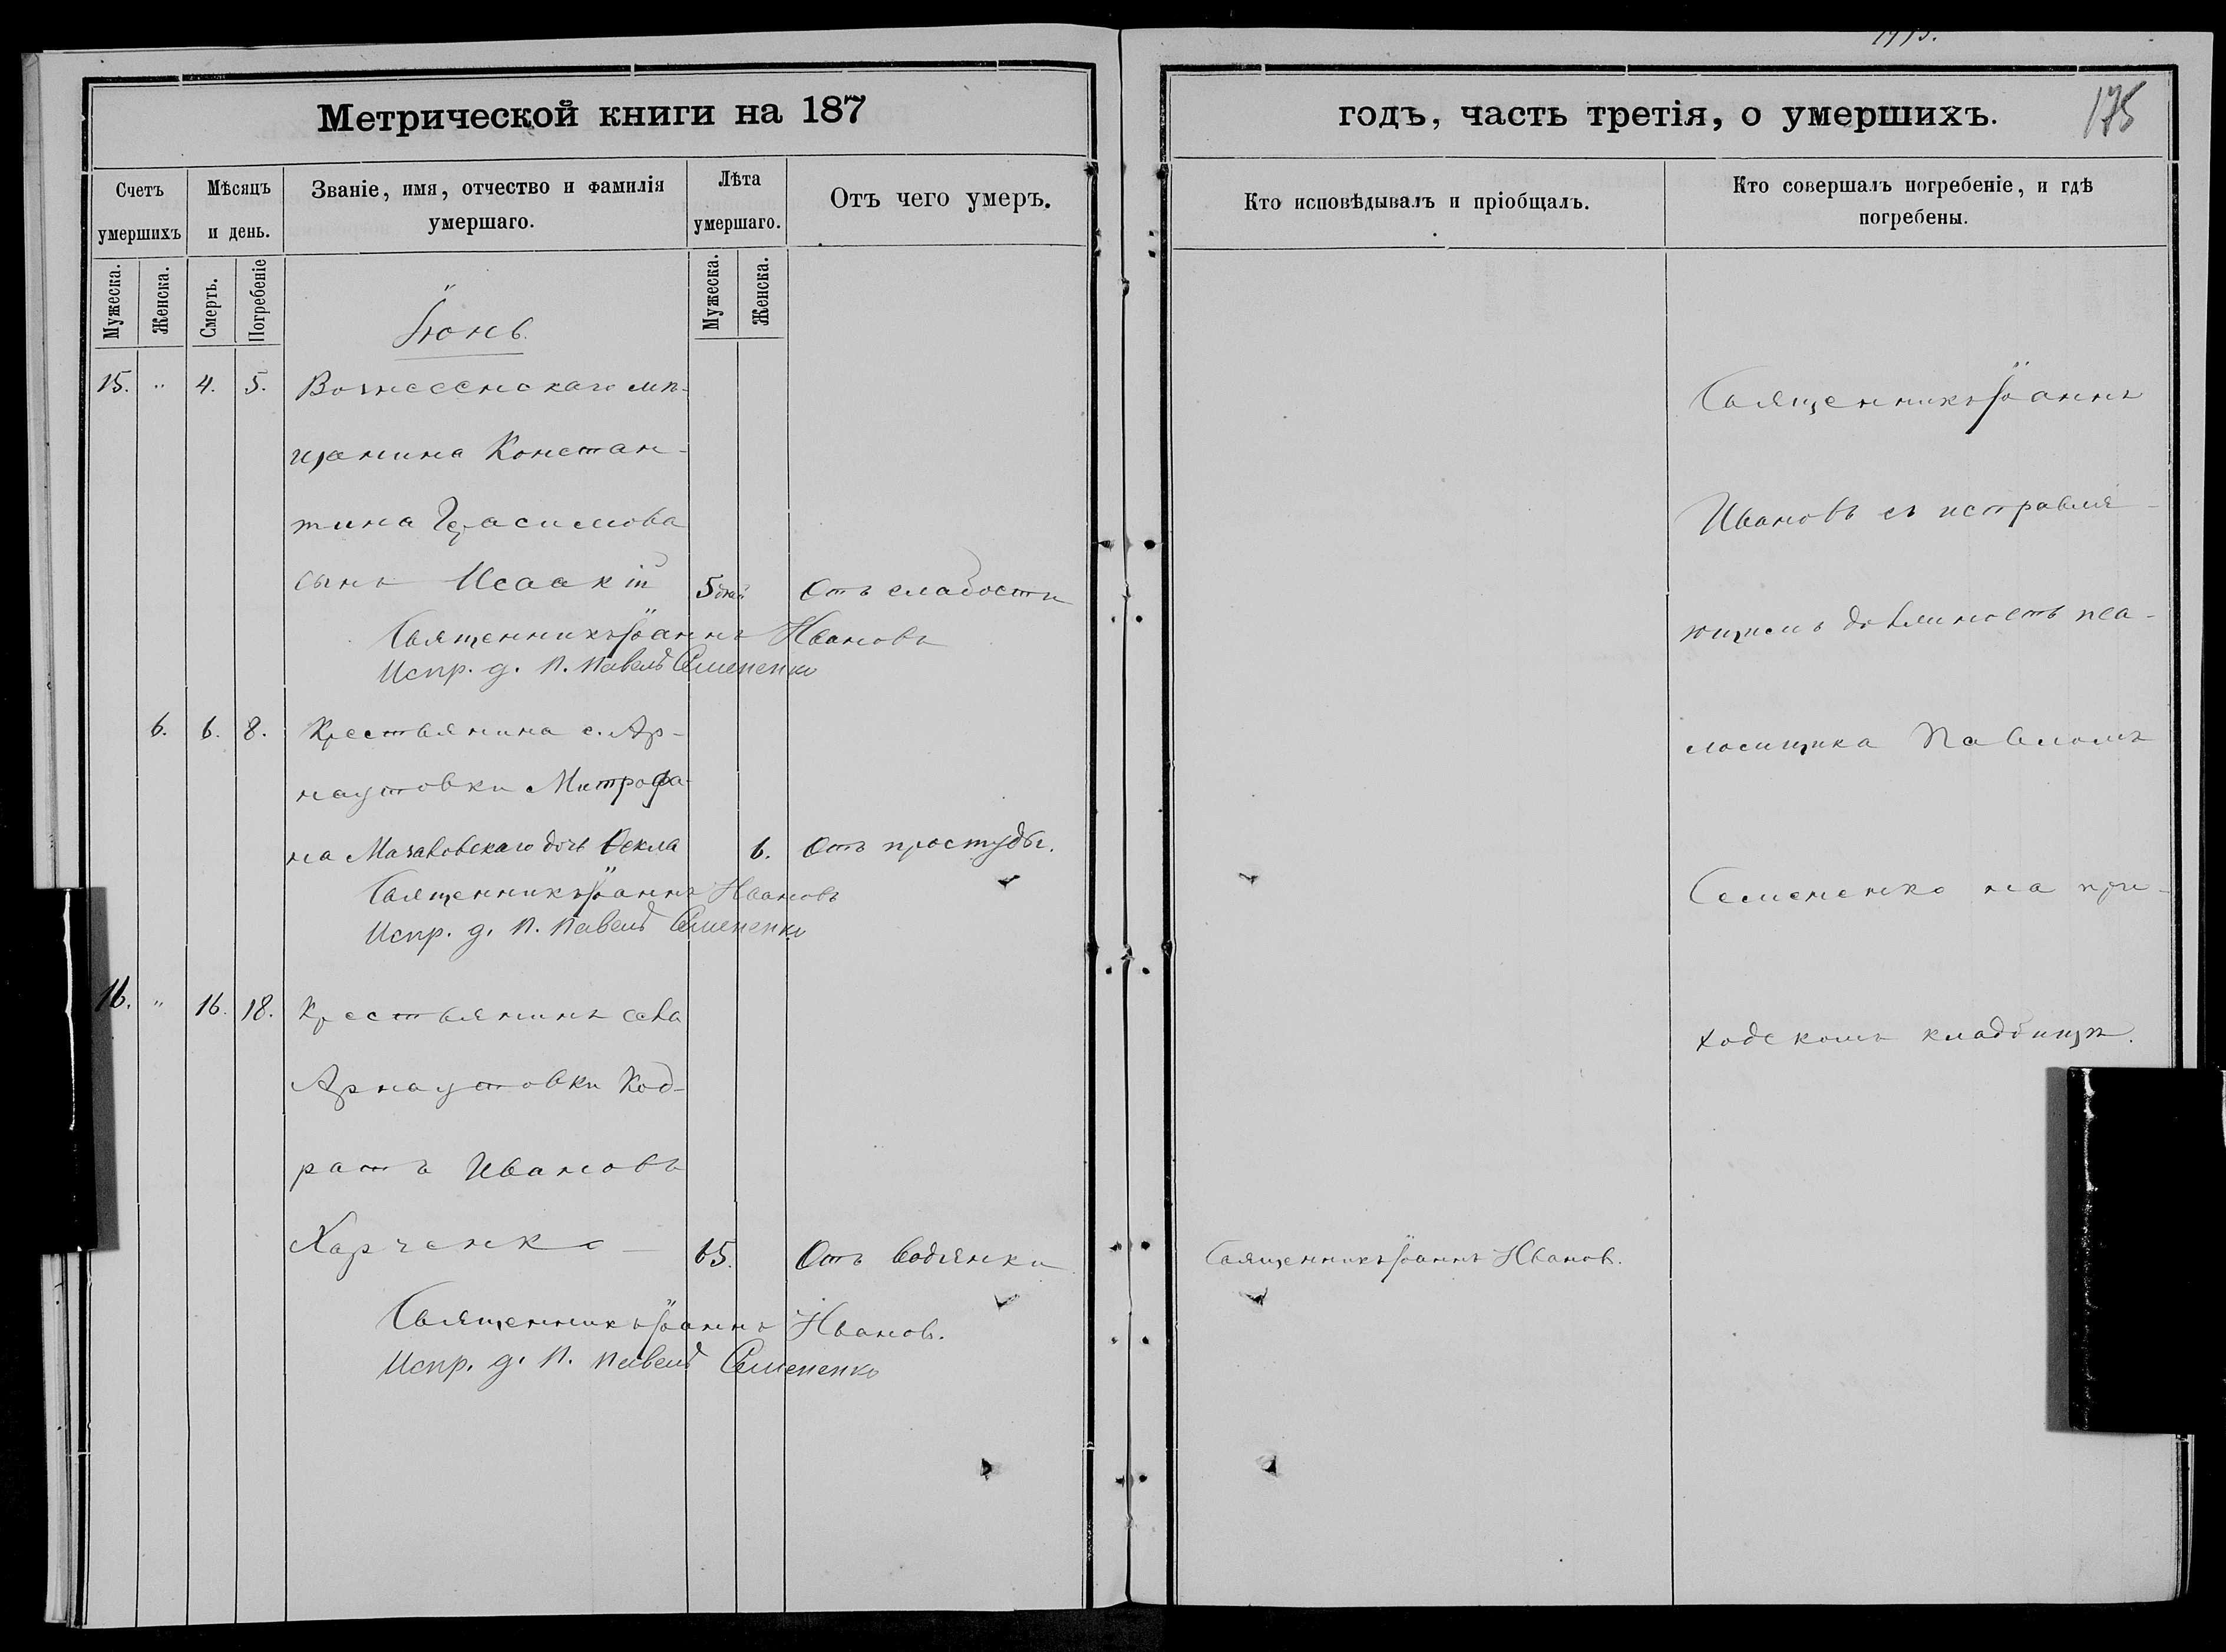 Метрической книги на 187
Счетъ умершихъ
Мѣсяцъ и день.
Званіе, имя, отчество и фамилія
умершаго.
Лѣта умершаго.
Отъ чего умеръ.
Мужеска.
Женска.
Смерть.
Погребеніе
Мужеска.
Женска.
Іюнь.
15. " 4. 5. Вознесенскаго мѣ-
щанина Констан-
тина Герасимова
сынъ Исаакій 5 дней Отъ слабости
Священникъ Іоаннъ Ивановъ
Испр. д. П. Павелъ Семененко
6. 6. 8. Крестьянина с. Ар-
наутовки Митрофа-
на Мачаковскаго дочь Ѳекла 6. Отъ простуды.
Священникъ Іоаннъ Ивановъ
Испр. д. П. Павелъ Семененко
16. " 16. 18. Крестьянинъ села
Арнаутовки Код-
ратъ Ивановъ
Харченко 65. Отъ водянки
Священникъ Іоаннъ Иванов.
Испр. д. П. Павелъ Семененко
годъ, часть третія, о умершихъ.
175
Кто исповѣдывалъ и пріобщалъ.
Кто совершалъ погребеніе, и гдѣ
погребены.
Священникъ Іоаннъ Иванов.
Священникъ Іоаннъ
Ивановъ съ исправля-
ющимъ должность пса-
ломщика Павломъ
Семененко на при-
ходскомъ кладбищѣ.